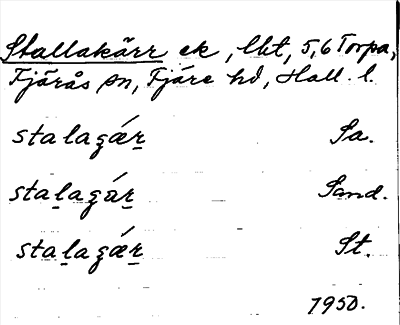 Stallakärr ek, lkt, 5,6 Torpa,
Fjärås sn, Fjäre hd, Hall. l.
stalagǽr Sa.
stalagár Sand.
stalagǽr St.
1950.